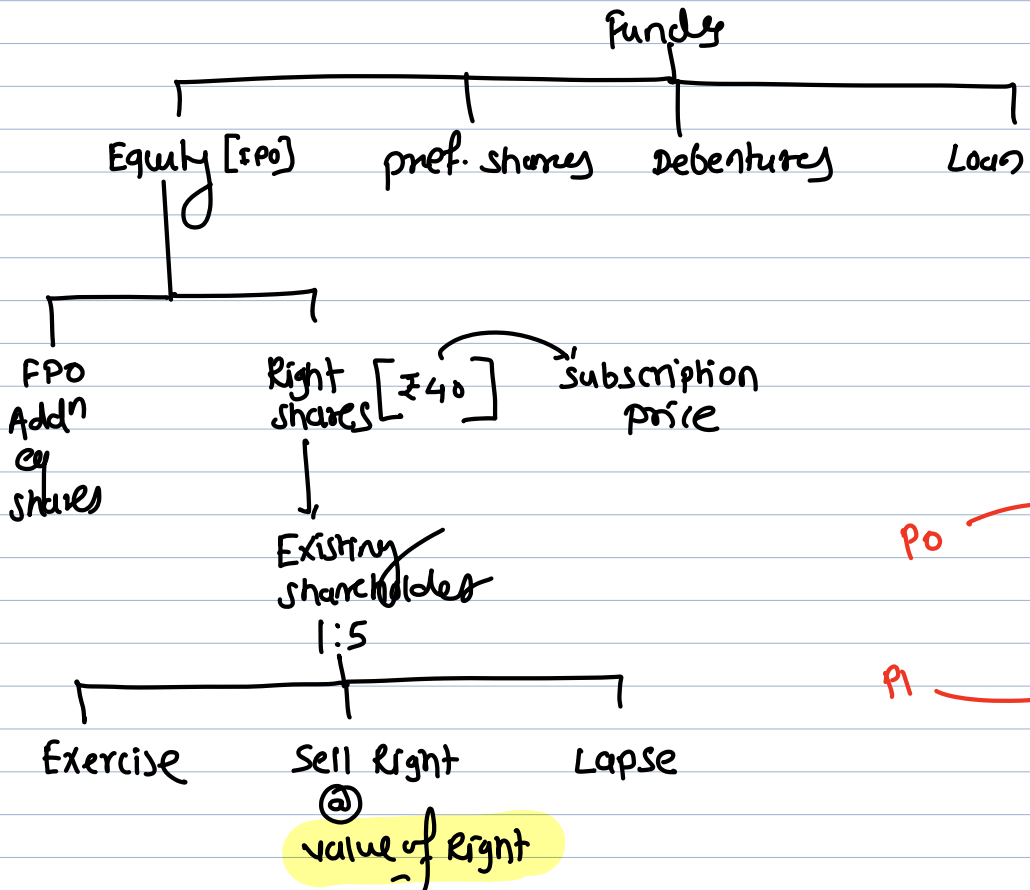 Funds
Equity [IPO] pref. shares Debentures Loan
FPO
Addn
eq
shares
Right
shares [₹40]
subscription
price
Existing
shareholder
1:5
P0
P1
Exercise Sell Right Lapse
@
value of Right